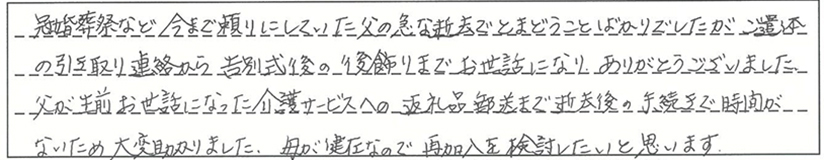 冠婚葬祭など今まで頼りにしていた父の急な逝去でとまどうことばかりでしたが ご遺体
の引き取り連絡から告別式後の後飾りまでお世話になり、ありがとうございました。
父が生前お世話になった介護サービスへの返礼品郵送まで逝去後の手続きで時間が
ないため大変助かりました。母が健在なので再加入を検討したいと思います。